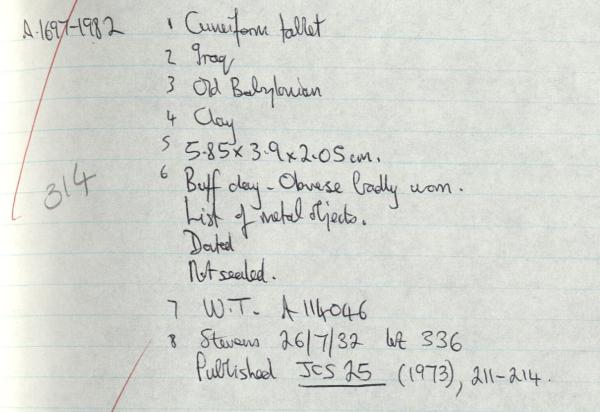 A.1697-1982
1 Cuneiform tablet
2 Iraq
3 Old Babylonian
4 Clay
5 5.85 x 3.9 x 2.05 cm.
6 Buff clay - Obverse badly worn.
314
List of metal objects.
Dated
Not sealed.
7 W.T. A 114046
8 Stevens 26/7/32 lot 336
Published JCS 25 (1973), 211-214.